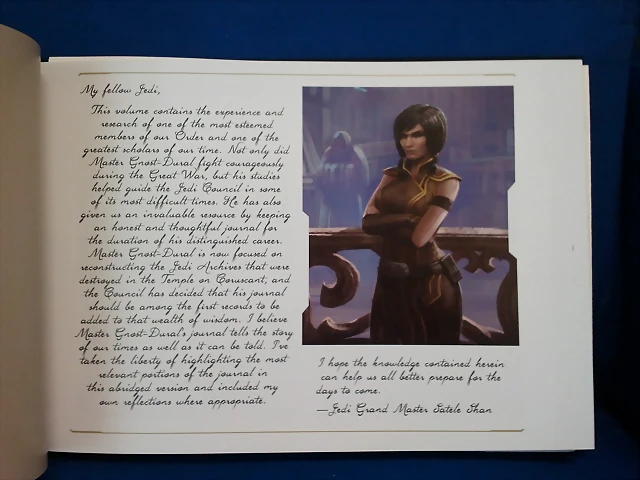 My fellow Jedi,
This volume contains the experience and
research of one of the most esteemed
members of our Order and one of the
greatest scholars of our time. Not only did
Master Gnost-Dural fight courageously
during the Great War, but his studies
helped guide the Jedi Council in some
of its most difficult times. He has also
given us an invaluable resource by keeping
an honest and thoughtful journal for
the duration of his distinguished career.
Master Gnost-Dural is now focused on
reconstructing the Jedi Archives that were
destroyed in the Temple on Coruscant, and
the Council has decided that his journal
should be among the first records to be
added to that wealth of wisdom. I believe
Master Gnost-Dural's journal tells the story
of our times as well as it can be told. I've
taken the liberty of highlighting the most
relevant portions of the journal in
this abridged version and included my
own reflections where appropriate.
I hope the knowledge contained herein
can help us all better prepare for the
days to come.
—Jedi Grand Master Satele Shan